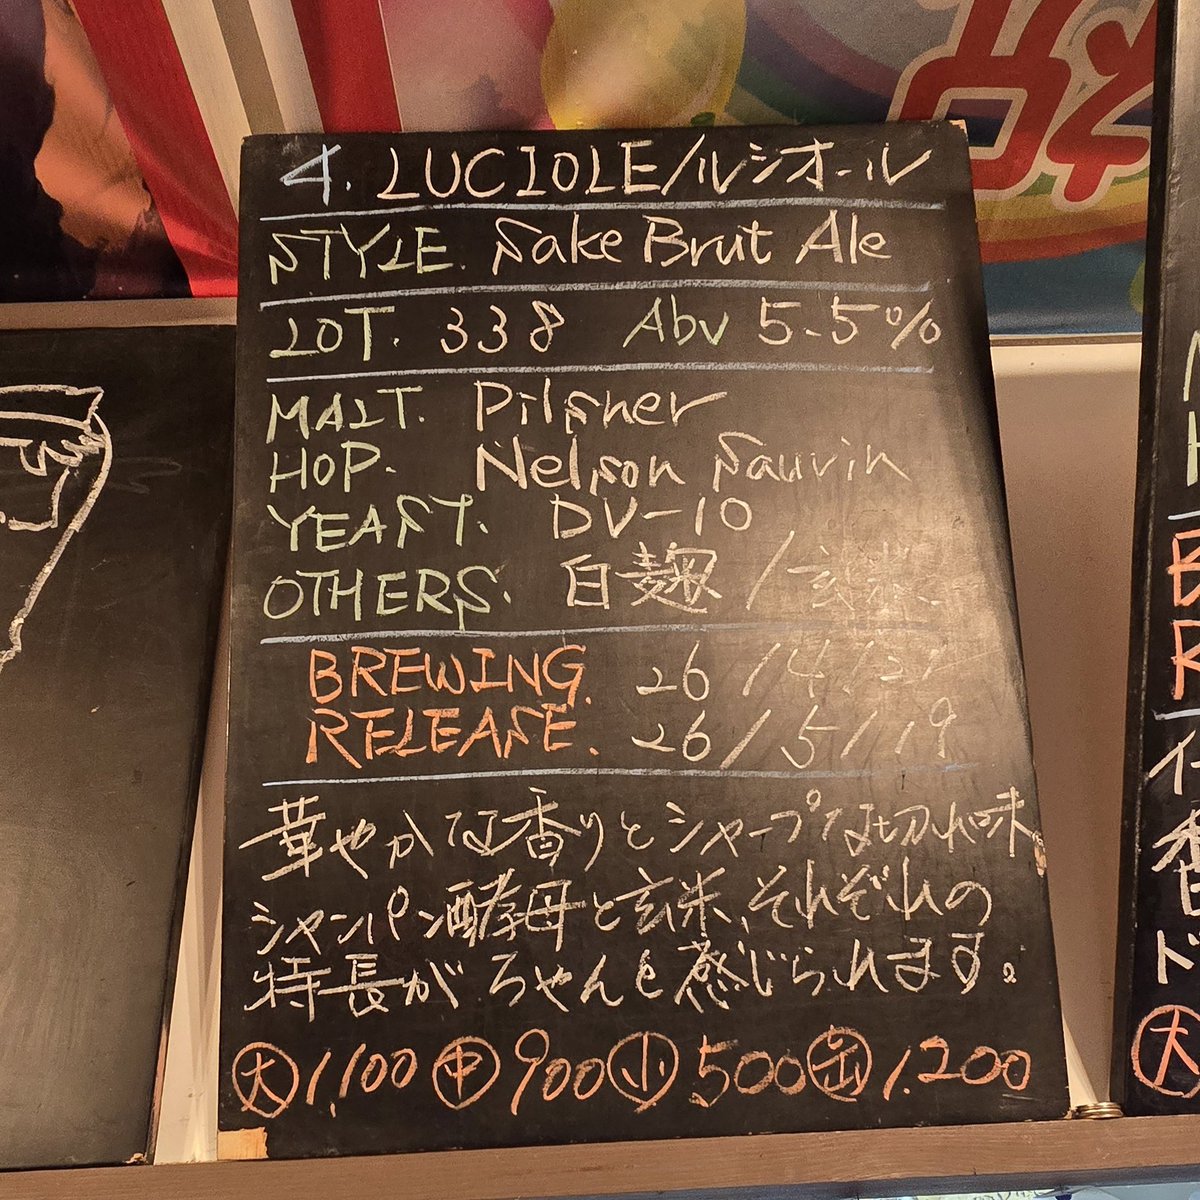 4. LUCIOLE/ルシオール
STYLE. Sake Brut Ale
LOT. 338 Abv 5.5%
MALT. Pilsner
HOP. Nelson Sauvin
YEAST. DV-10
OTHERS. 白麹/玄米
BREWING. 26/4/
RELEASE. 26/5/19
華やかな香りとシャープな切れ味
シャンパン酵母と玄米、それぞれの
特長がちゃんと感じられます。
大 1,100 中 900 小 500 缶 1,200